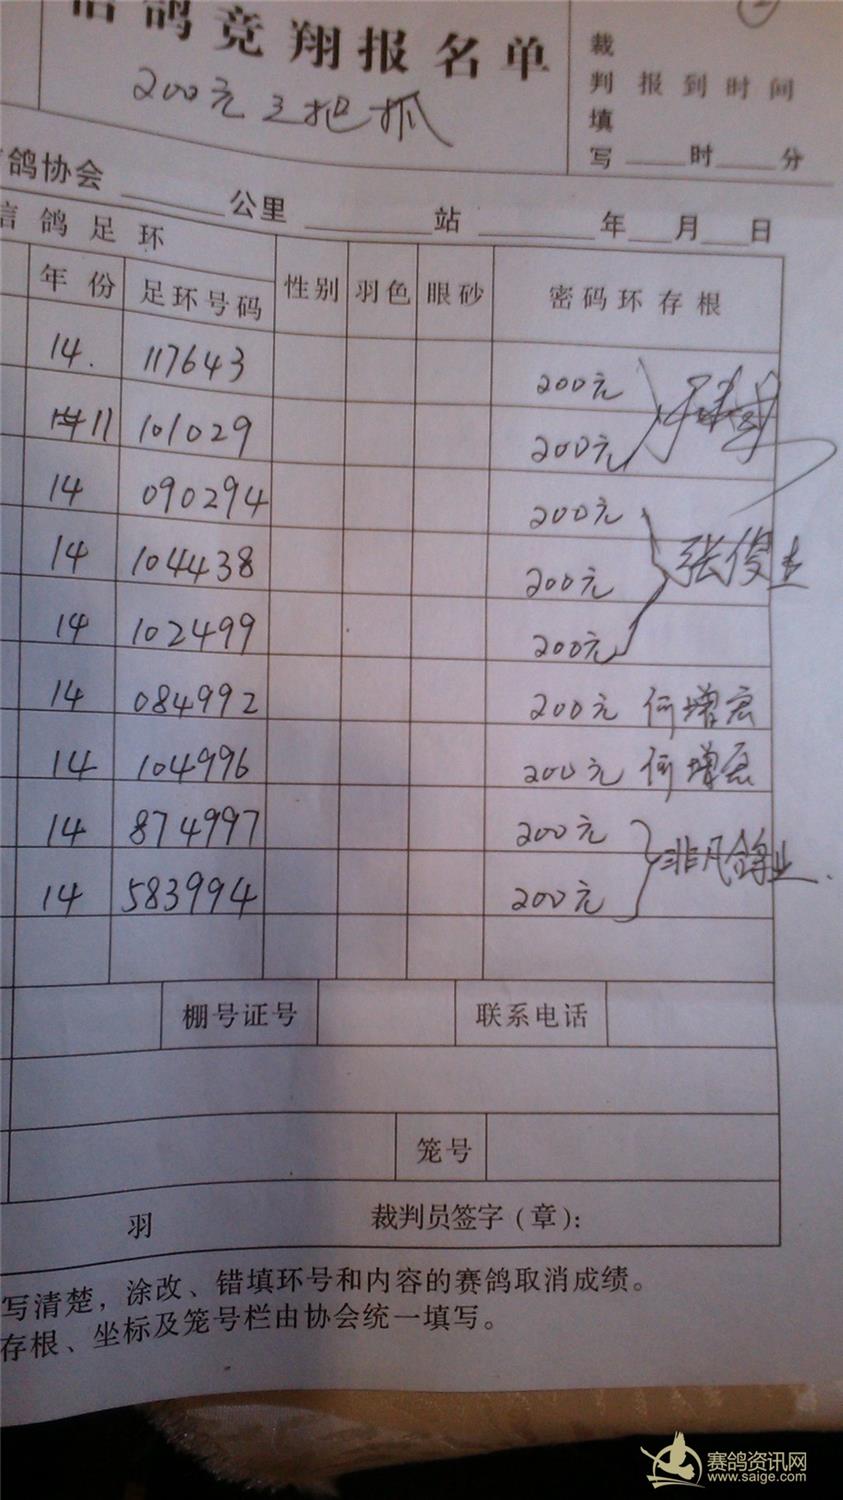 信鸽竞翔报名单
200元三把抓
裁
判 报到时间
填
写 ____时____分
鸽协会 ______公里 ______站 ______年___月___日
信鸽足环
年份 足环号码 性别 羽色 眼砂 密码环存根
14. 117643 200元
11 101029 200元
14 090294 200元
14 104438 200元 张俊
14 102499 200元
14 084992 200元 何增宏
14 104996 200元 何增宏
14 874997 200元
14 583994 200元 非凡鸽业.
棚号证号 联系电话
笼号
羽 裁判员签字(章):
写清楚,涂改、错填环号和内容的赛鸽取消成绩。
存根、坐标及笼号栏由协会统一填写。
赛鸽资讯网
www.saige.com